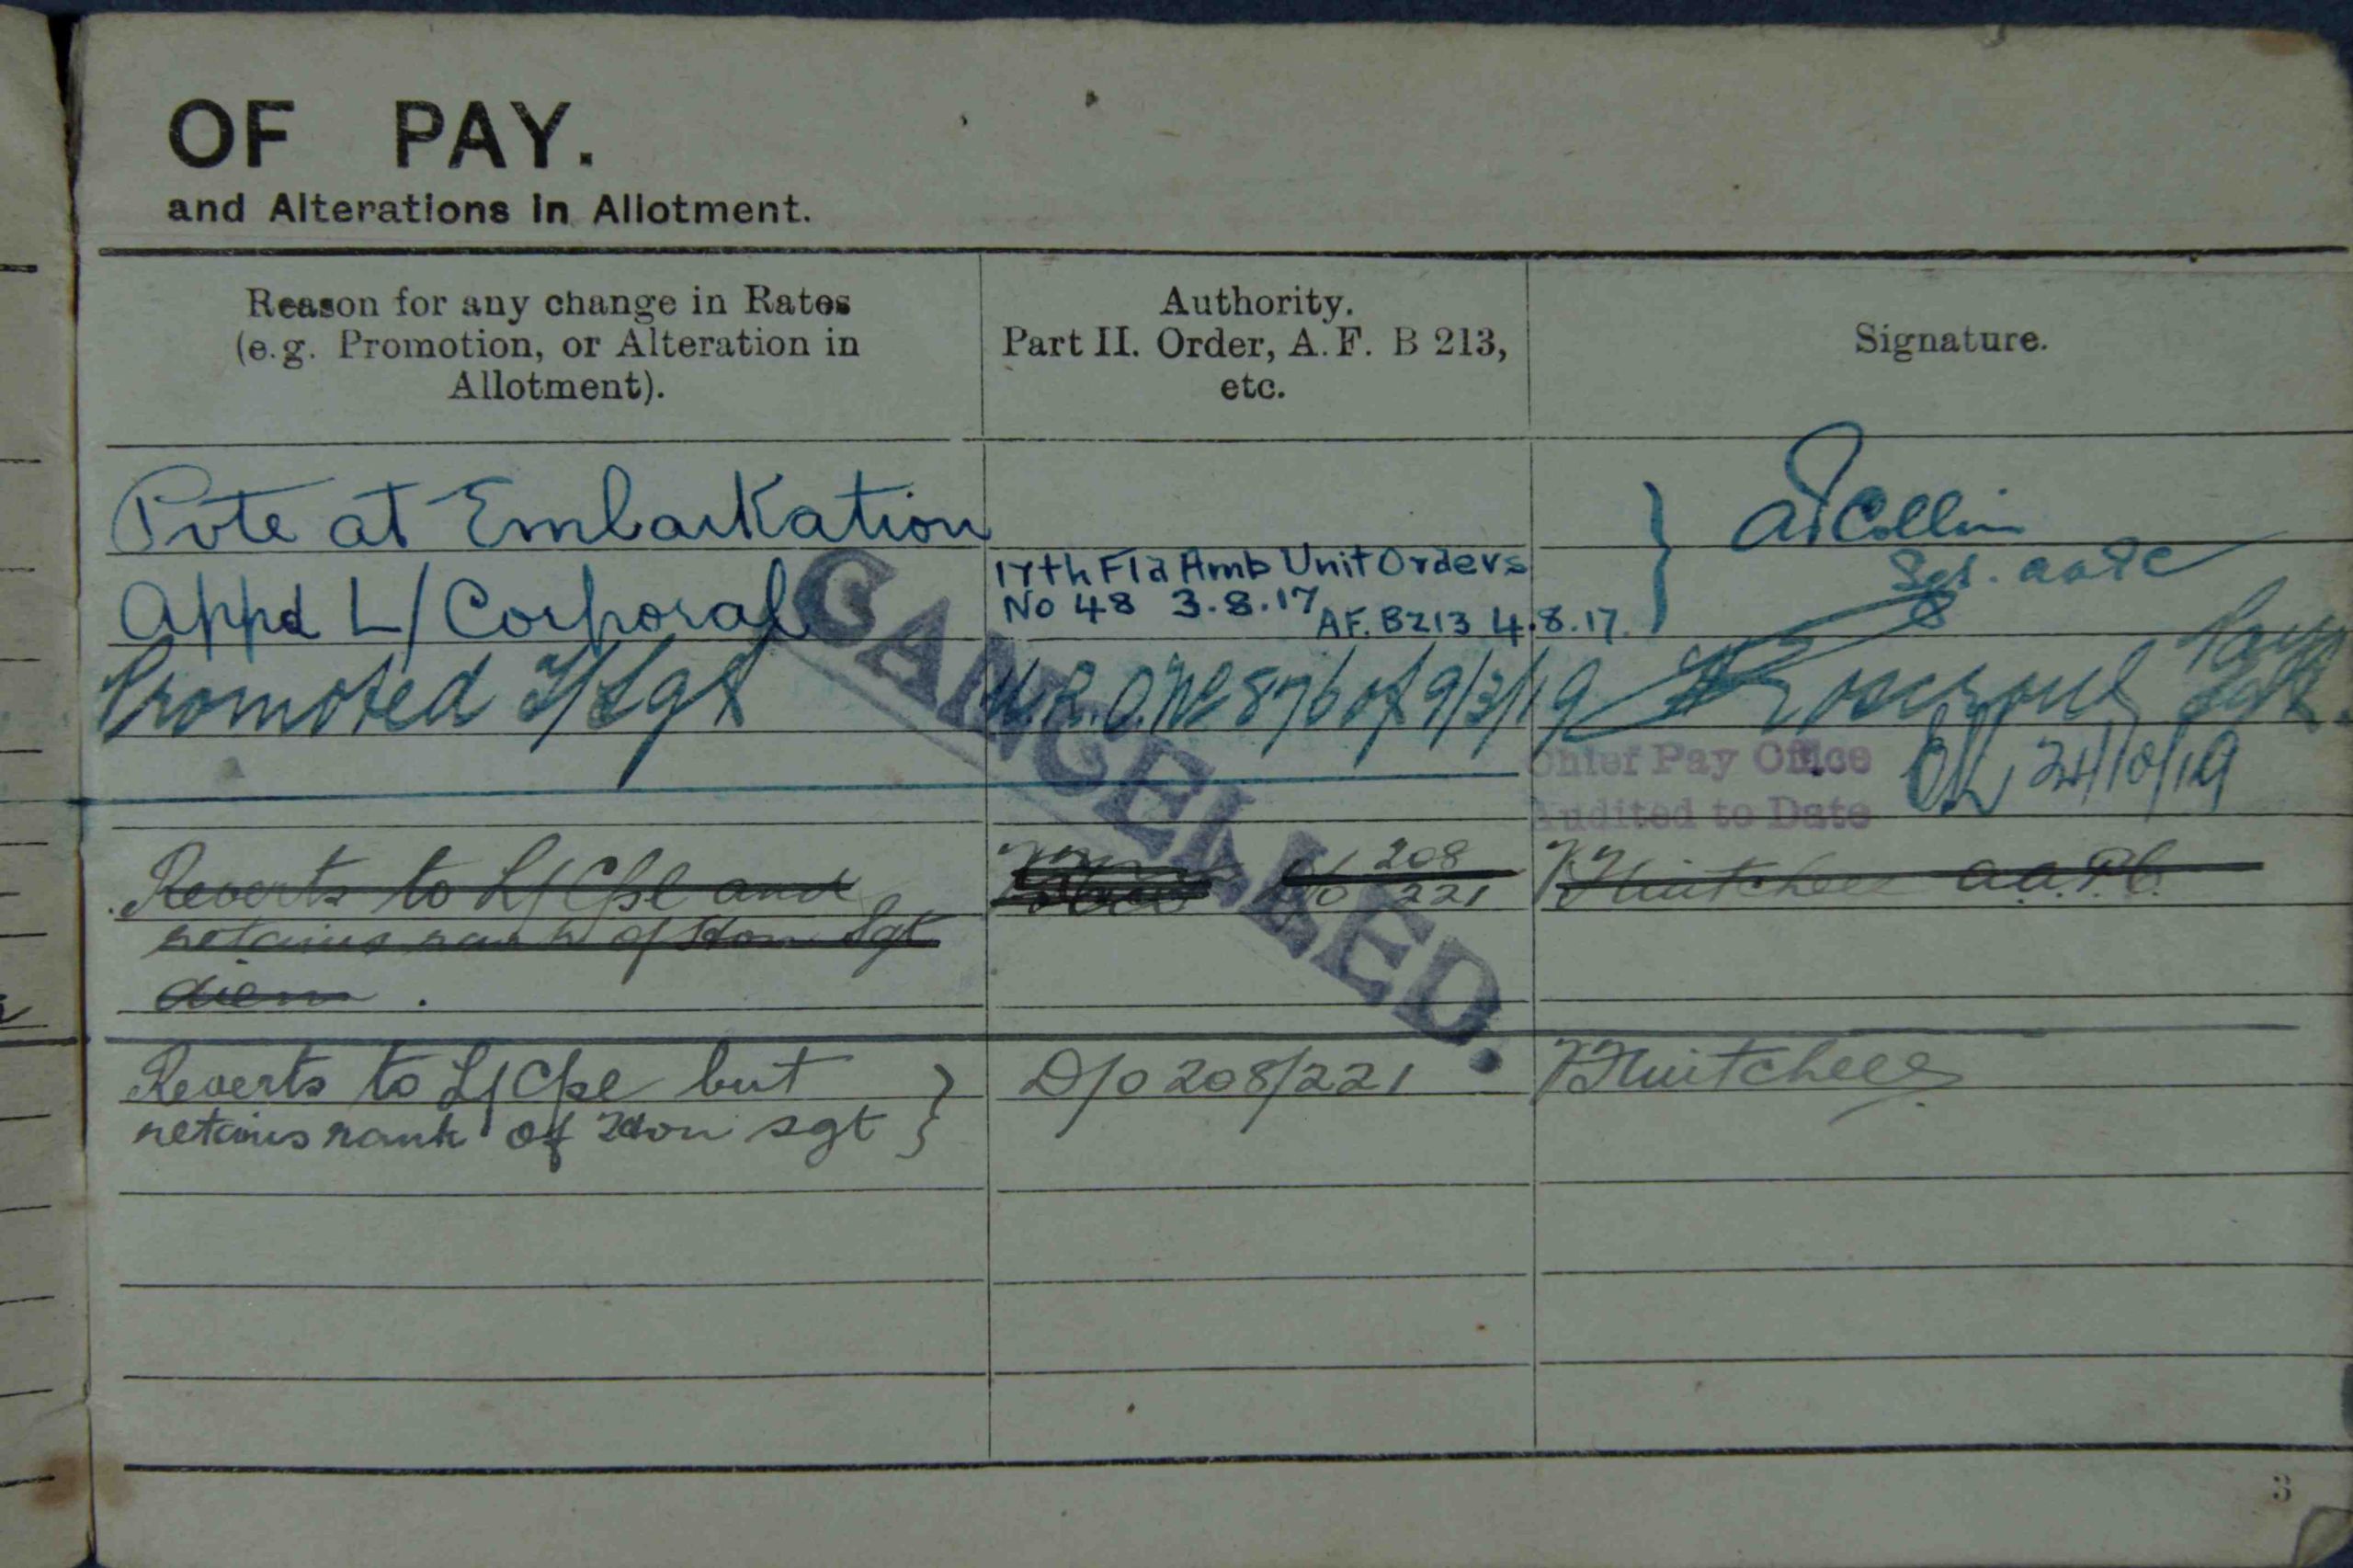 OF PAY.
and Alterations in Allotment.
Reason for any change in Rates
(e.g. Promotion, or Alteration in
Allotment).
Authority.
Part II. Order, A. F. B 213,
etc.
Signature.
Pvte at Embarkation
Appd L/Corporal
17th Fld Amb Unit Orders
No 48 3.8.17
AF. B213 4.8.17.
Collin
Sgt.
Promoted T/Sgt
No 876 of 9/3/19
Pay
Sgt.
CANCELLED.
Chief Pay Office
Audited to Date
24/10/19
Reverts to L/Cpl and
retains rank of Hon Sgt
diem.
208
221
Reverts to L/Cpl but
retains rank of Hon sgt
D/O 208/221
3